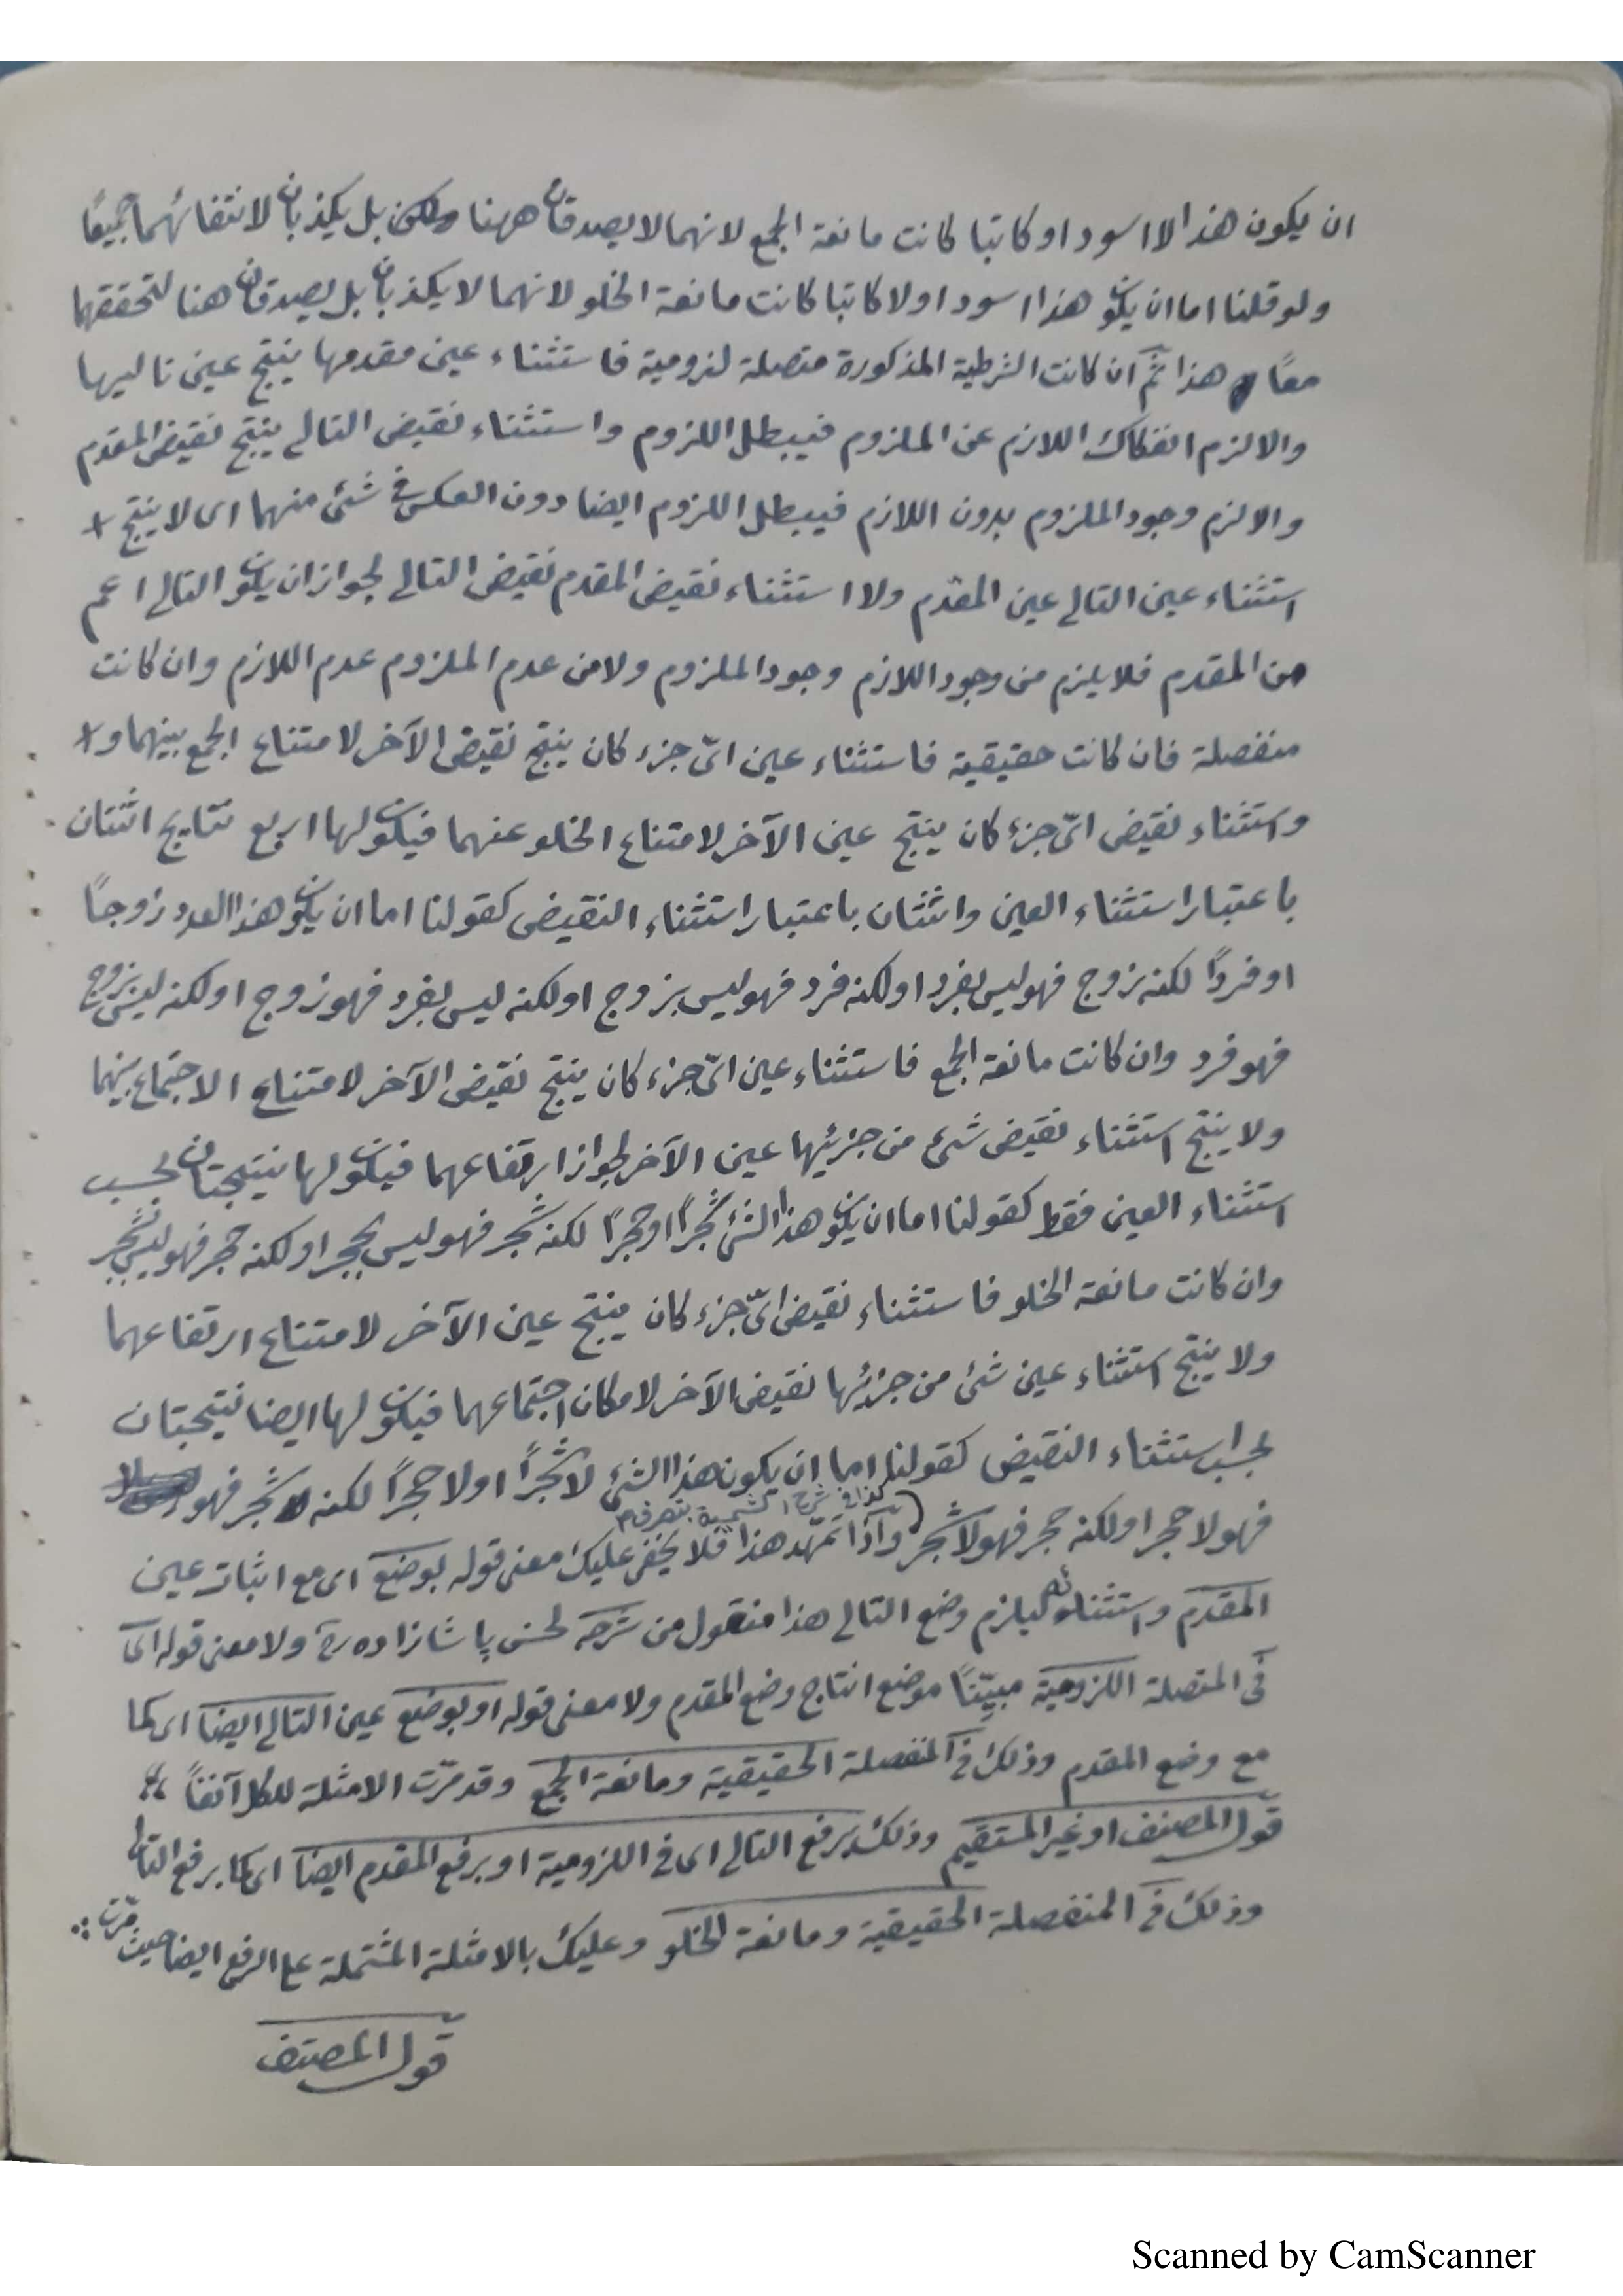 ان يكون هذا لا اسود او كاتبا كانت مانعة الجمع لانهما لا يصدقان ههنا بل يكذبان لانتفائهما جميعًا
ولو قلنا اما ان يكون هذا اسود او لا كاتبا كانت مانعة الخلو لانهما لا يكذبان بل يصدقان هنا لتحققهما
معًا هذا ثم ان كانت الشرطية المذكورة متصلة لزومية فاستثناء عين مقدمها ينتج عين تاليها
والا لزم انفكاك اللازم عن الملزوم فيبطل اللزوم واستثناء نقيض التالي ينتج نقيض المقدم
والا لزم وجود الملزوم بدون اللازم فيبطل اللزوم ايضا دون العكس في شئ منهما اى لا ينتج +
استثناء عين التالي عين المقدّم ولا استثناء نقيض المقدم نقيض التالي لجواز ان يكون التالي اعم
من المقدم فلا يلزم من وجود اللازم وجود الملزوم ولا من عدم الملزوم عدم اللازم وان كانت
منفصلة فان كانت حقيقية فاستثناء عين اىّ جزء كان ينتج نقيض الآخر لامتناع الجمع بينهما و +
واستثناء نقيض اىّ جزء كان ينتج عين الآخر لامتناع الخلو عنهما فيكون لها اربع نتايج اثنتان
باعتبار استثناء العين واثنتان باعتبار استثناء النقيض كقولنا اما ان يكون هذا العدد زوجًا
او فردًا لكنه زوج فهو ليس بفرد او لكنه فرد فهو ليس بزوج او لكنه ليس بفرد فهو زوج او لكنه ليس بزوج
فهو فرد وان كانت مانعة الجمع فاستثناء عين اىّ جزء كان ينتج نقيض الآخر لامتناع الاجتماع بينهما
ولا ينتج استثناء نقيض شئ من جزئيها عين الآخر لجواز ارتفاعهما فيكون لها نتيجتان بحسب
استثناء العين فقط كقولنا اما ان يكون هذا الشئ شجرًا او حجرًا لكنه شجر فهو ليس بحجر او لكنه حجر فهو ليس بشجر
وان كانت مانعة الخلو فاستثناء نقيض اىّ جزء كان ينتج عين الآخر لامتناع ارتفاعهما
ولا ينتج استثناء عين شئ من جزئيها نقيض الآخر لامكان اجتماعهما فيكون لها ايضا نتيجتان
بحسب استثناء النقيض كقولنا اما ان يكون هذا الشئ لا شجرًا او لا حجرًا لكنه شجر فهو
كذا في شرح الشمسية بتصرف م
فهو لا حجر او لكنه حجر فهو لا شجر) وآذا تمهّد هذا فلا يخفى عليك معنى قوله بوضع اى مع اثبات عين
المقدم واستثنائه يلزم وضع التالي هذا منقول من شرحه لحسن پاشا زاده ره ولا معنى قوله اى
في المتصلة اللزومية مبيّنًا موضع انتاج وضع المقدم ولا معنى قوله او بوضع عين التالي ايضا اى كما
مع وضع المقدم وذلك في المنفصلة الحقيقية ومانعة الجمع وقد مرّت الامثلة للكل آنفًا ؛؛
قول المصنف او غير المستقيم وذلك برفع التالي اى في اللزومية او برفع المقدم ايضا اى كما برفع التالي
وذلك في المنفصلة الحقيقية ومانعة الخلو وعليك بالامثلة المشتملة على الرفع ايضا حيث مرّت :
قول المصنف
Scanned by CamScanner